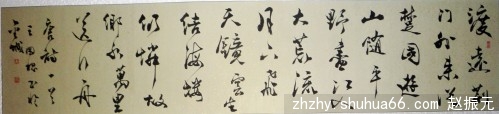 渡遠荊
門外來從
楚國遊
山隨平
野盡江入
大荒流
月下飛
天鏡雲生
結海樓
仍憐故
鄉水萬里
送行舟
唐詩一首
zhzhy.shuhua66.com 赵振元